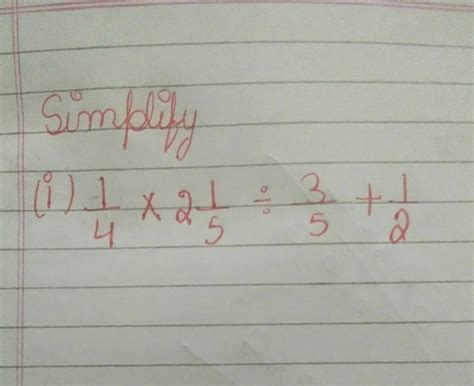 Simplify
(i) 1/4 × 2 1/5 ÷ 3/5 + 1/2